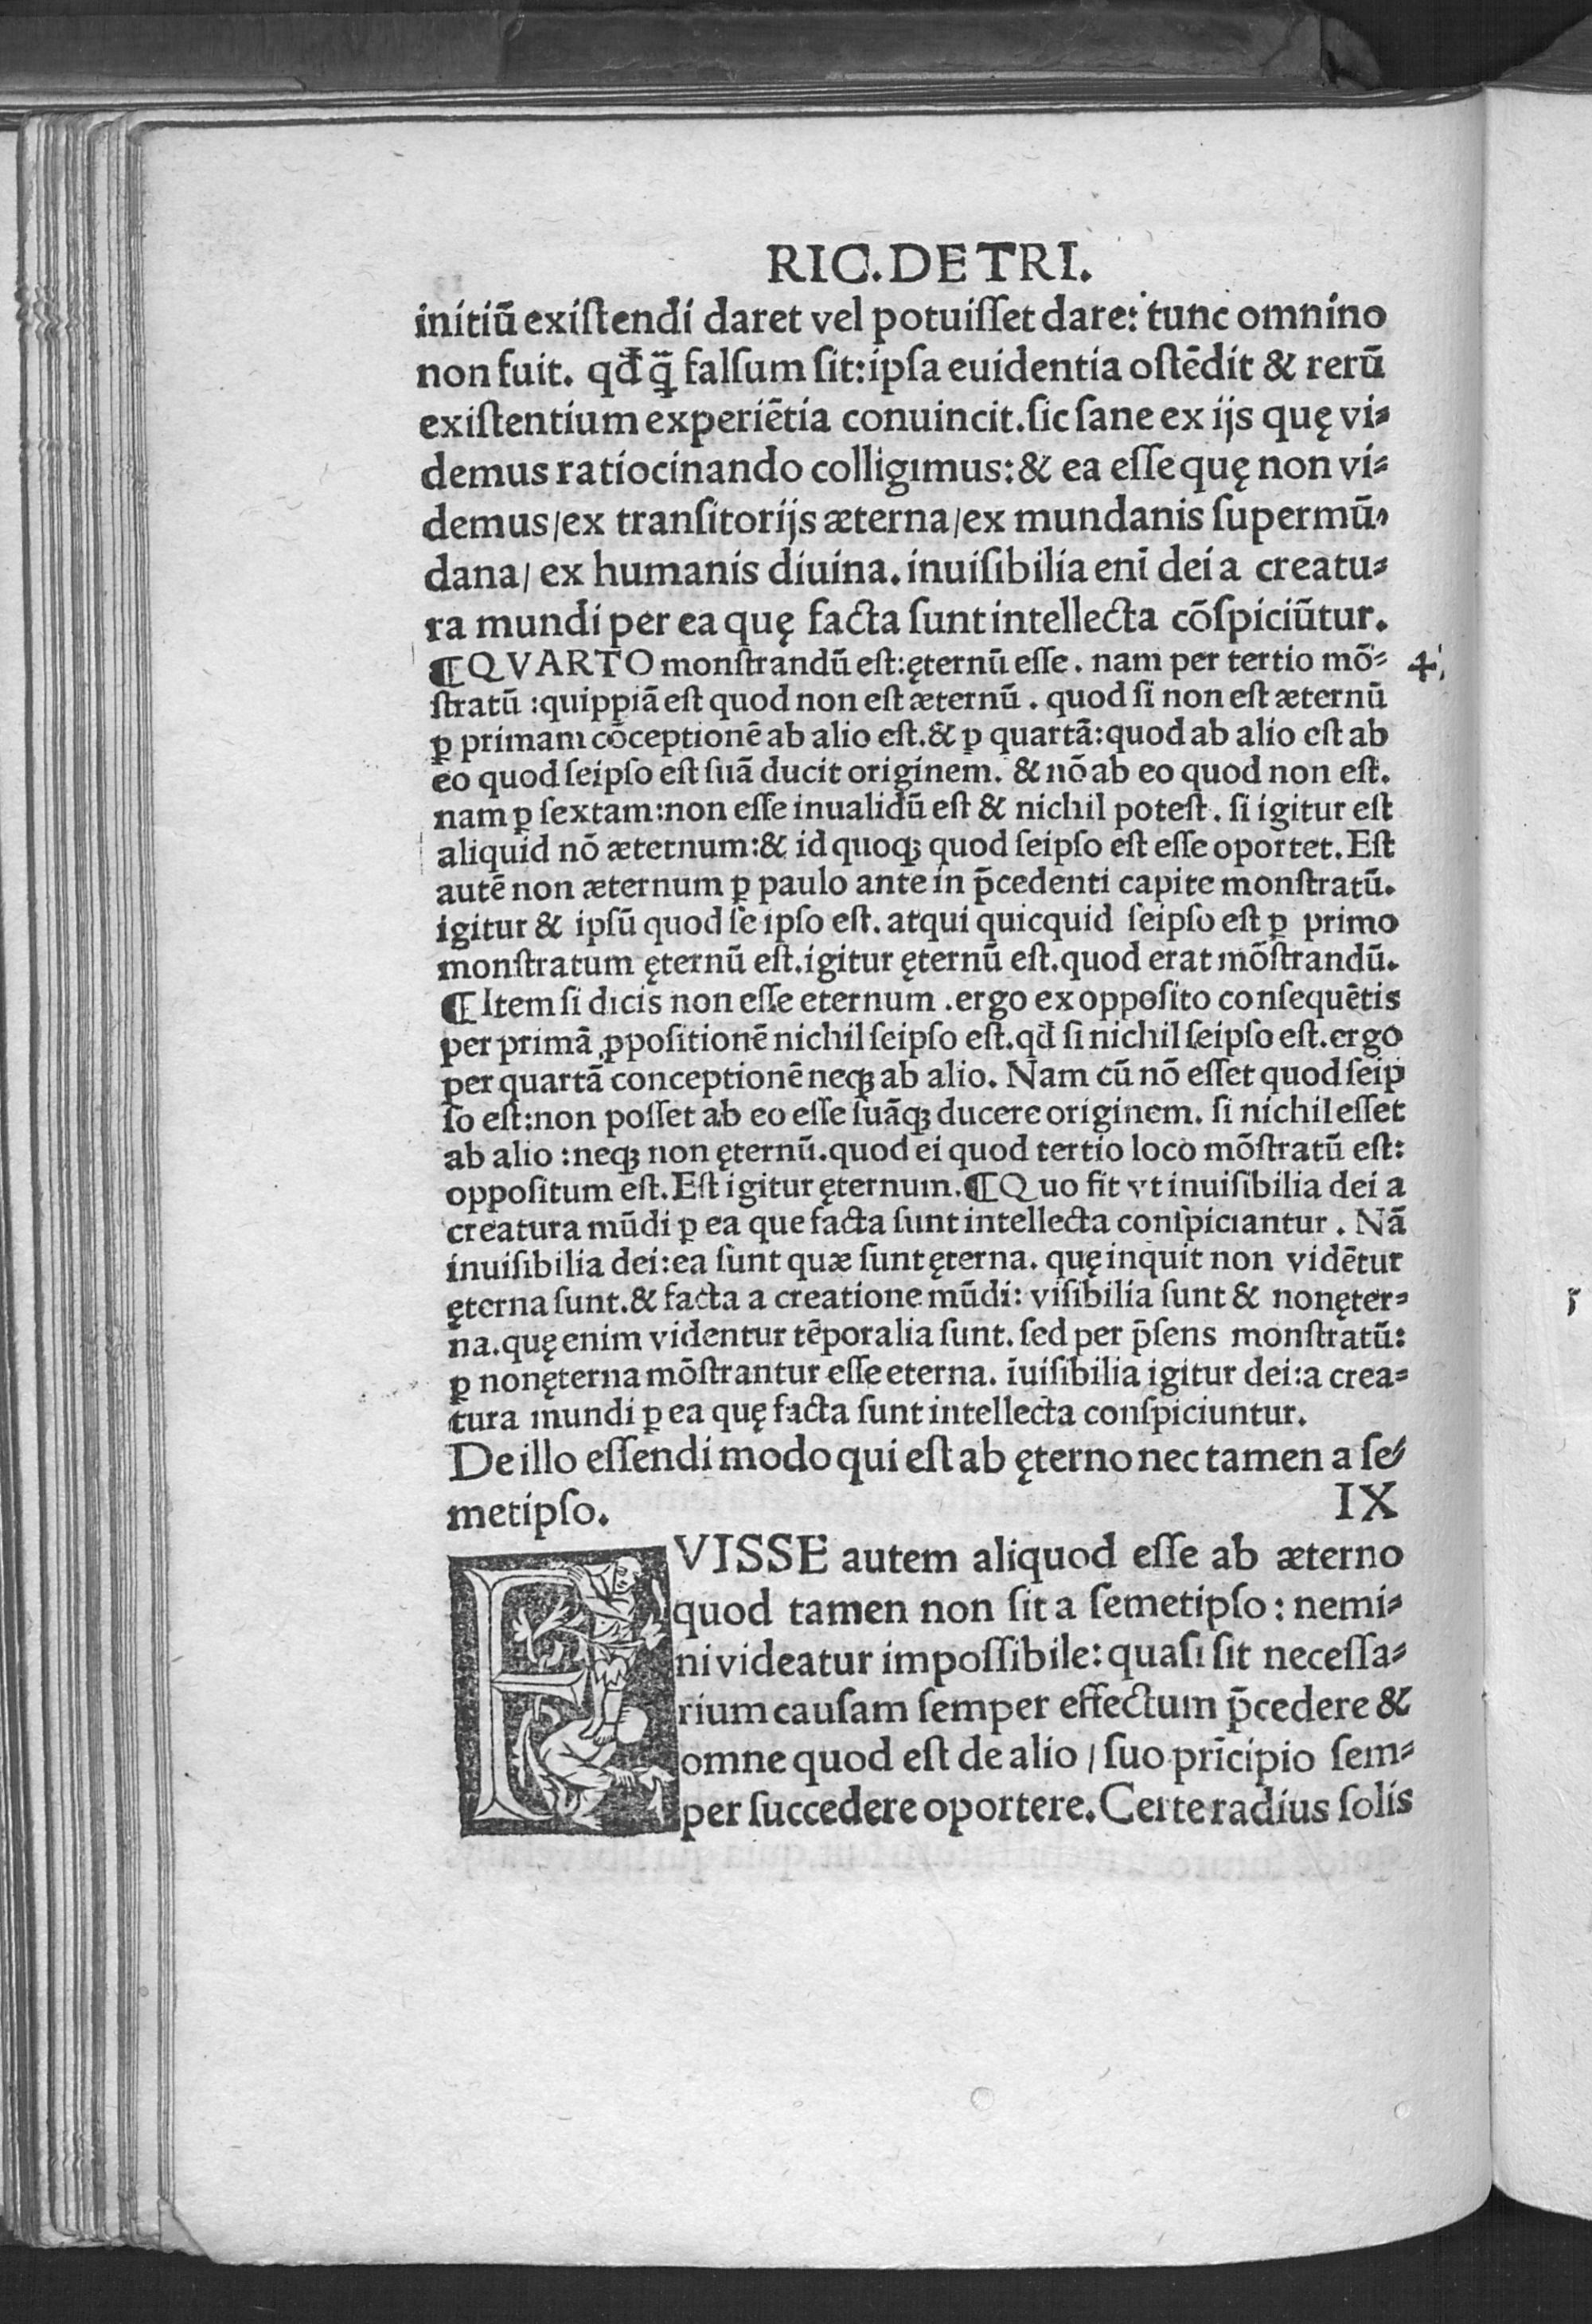 RIC. DE TRI.
initiū existendi daret vel potuisset dare: tunc omnino
non fuit. qđ q̃ falsum sit: ipsa euidentia ostēdit & rerū
existentium experiētia conuincit. sic sane ex ijs quę vi-
demus ratiocinando colligimus: & ea esse quę non vi-
demus/ex transitorijs æterna/ex mundanis supermū-
dana/ ex humanis diuina. inuisibilia enī dei a creatu-
ra mundi per ea quę facta sunt intellecta cōspiciūtur.
¶QVARTO monstrandū est: ęternū esse. nam per tertio mō- 4
stratū: quippiā est quod non est æternū. quod si non est æternū
ꝑ primam cōceptionē ab alio est. & ꝑ quartā: quod ab alio est ab
eo quod seipso est suā ducit originem. & nō ab eo quod non est.
nam ꝑ sextam: non esse inualidū est & nichil potest. si igitur est
aliquid nō æternum: & id quoqꝫ quod seipso est esse oportet. Est
autē non æternum ꝑ paulo ante in p̄cedenti capite monstratū.
igitur & ipsū quod se ipso est. atqui quicquid seipso est ꝑ primo
monstratum ęternū est. igitur ęternū est. quod erat mōstrandū.
¶Item si dicis non esse eternum. ergo ex opposito consequētis
per primā ꝓpositionē nichil seipso est. qđ si nichil seipso est. ergo
per quartā conceptionē neqꝫ ab alio. Nam cū nō esset quod seip
so est: non posset ab eo esse suāqꝫ ducere originem. si nichil esset
ab alio: neqꝫ non ęternū. quod ei quod tertio loco mōstratū est:
oppositum est. Est igitur ęternum. ¶Quo fit vt inuisibilia dei a
creatura mūdi ꝑ ea que facta sunt intellecta conspiciantur. Nā
inuisibilia dei: ea sunt quæ sunt ęterna. quę inquit non vidētur
ęterna sunt. & facta a creatione mūdi: visibilia sunt & nonęter-
na. quę enim videntur tēporalia sunt. sed per p̄sens monstratū:
ꝑ nonęterna mōstrantur esse eterna. īuisibilia igitur dei: a crea-
tura mundi ꝑ ea quę facta sunt intellecta conspiciuntur.
De illo essendi modo qui est ab ęterno nec tamen a se-
metipso. IX
FVISSE autem aliquod esse ab æterno
quod tamen non sit a semetipso: nemi-
ni videatur impossibile: quasi sit necessa-
rium causam semper effectum p̄cedere &
omne quod est de alio / suo prīcipio sem-
per succedere oportere. Certe radius solis